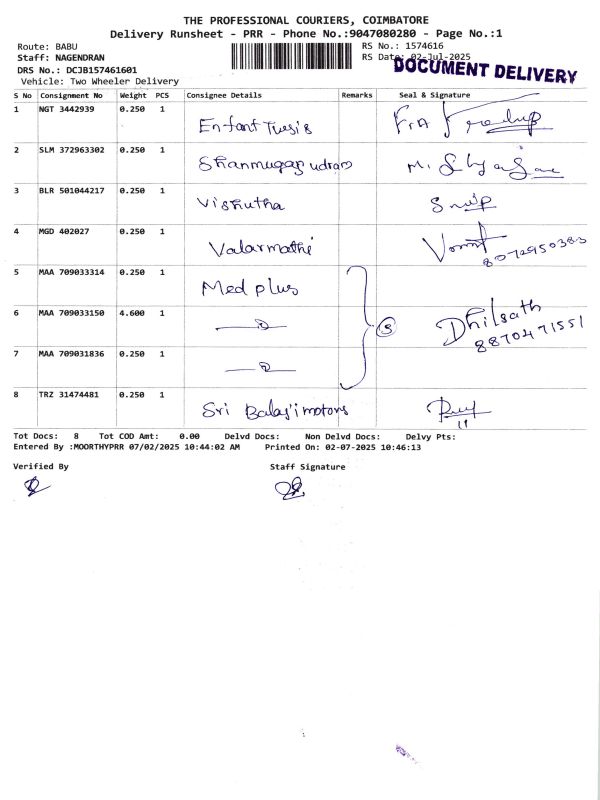 THE PROFESSIONAL COURIERS, COIMBATORE
Delivery Runsheet - PRR - Phone No.:9047080280 - Page No.:1
Route: BABU RS No.: 1574616
Staff: NAGENDRAN RS Date: 02-Jul-2025
DRS No.: DCJB157461601 DOCUMENT DELIVERY
Vehicle: Two Wheeler Delivery
S No Consignment No Weight PCS Consignee Details Remarks Seal & Signature
1 NGT 3442939 0.250 1 Enfant
2 SLM 372963302 0.250 1 Shanmugasundram
3 BLR 501044217 0.250 1 Vishutha
4 MGD 402027 0.250 1 Valarmathi 8072950383
5 MAA 709033314 0.250 1 Med plus
6 MAA 709033150 4.600 1 Dhilsath
8870471551
7 MAA 709031836 0.250 1
8 TRZ 31474481 0.250 1 Sri Balaji motors
Tot Docs: 8 Tot COD Amt: 0.00 Delvd Docs: Non Delvd Docs: Delvy Pts:
Entered By :MOORTHYPRR 07/02/2025 10:44:02 AM Printed On: 02-07-2025 10:46:13
Verified By Staff Signature